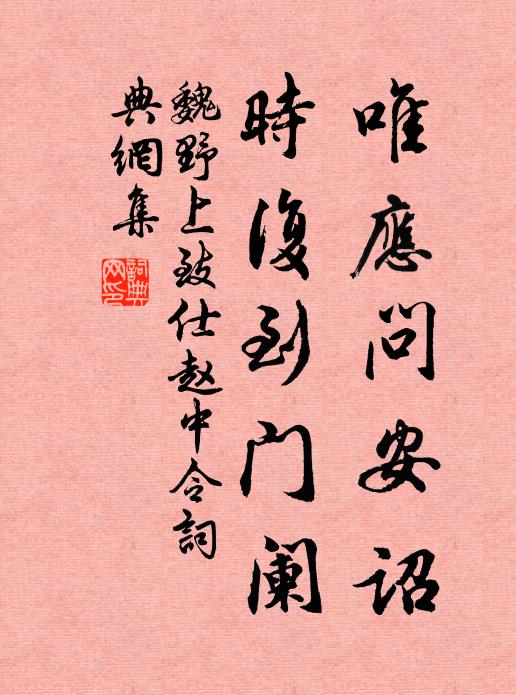 唯應問安詔
時復到门阑
魏野上致仕赵中令詞
典網集
詞典網印